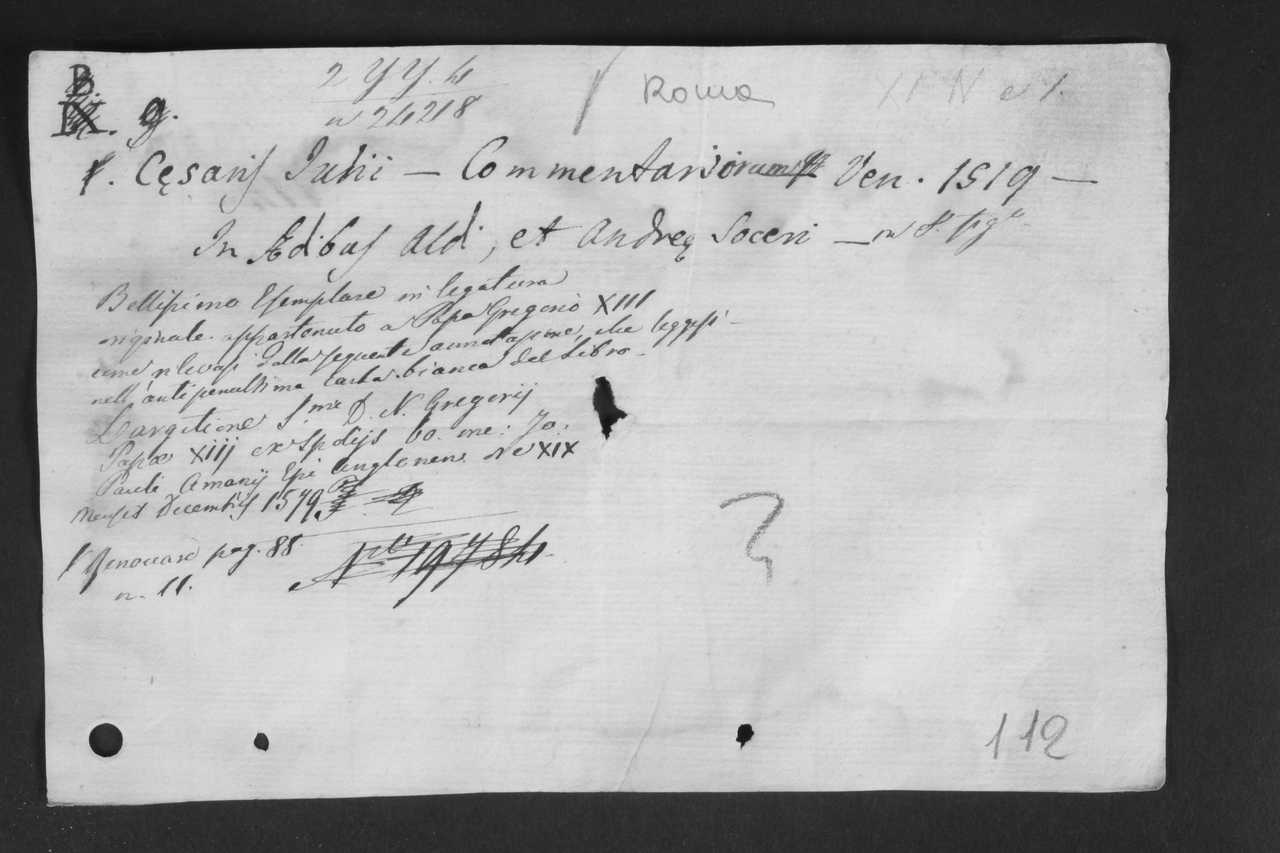 B.
IX. g.
2 YY. h
n 24218
Roma
XI N e 1.
1. Cęsaris Julii — Commentariorum Ven. 1519 —
In Ædibus Aldi, et Andreę Soceri — in 8. fig.e
Bellissimo Esemplare in legatura
originale appartenuto a Papa Gregorio XIII
come rilevasi dalla seguente annotazione, che leggesi
nell'antipenultima carta bianca del Libro.
Largitione S.mi D. N. Gregorij
Papæ XIIJ ex spolijs bo. me: Jo:
Pauli Amanij Epi Anglonen. die XIX
Mensis Decembris 1579
Renouard pag. 88.
n. 11.
N. 19784
112